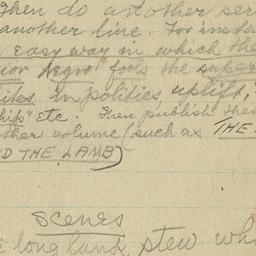 then do another ser
another line. For insta
easy way in which the
ior Negro" fools the super
ites in politics, uplift,
ship" etc. Then publish the
ther volume (such as THE
D THE LAMB)
Scenes
e long land, stew wh